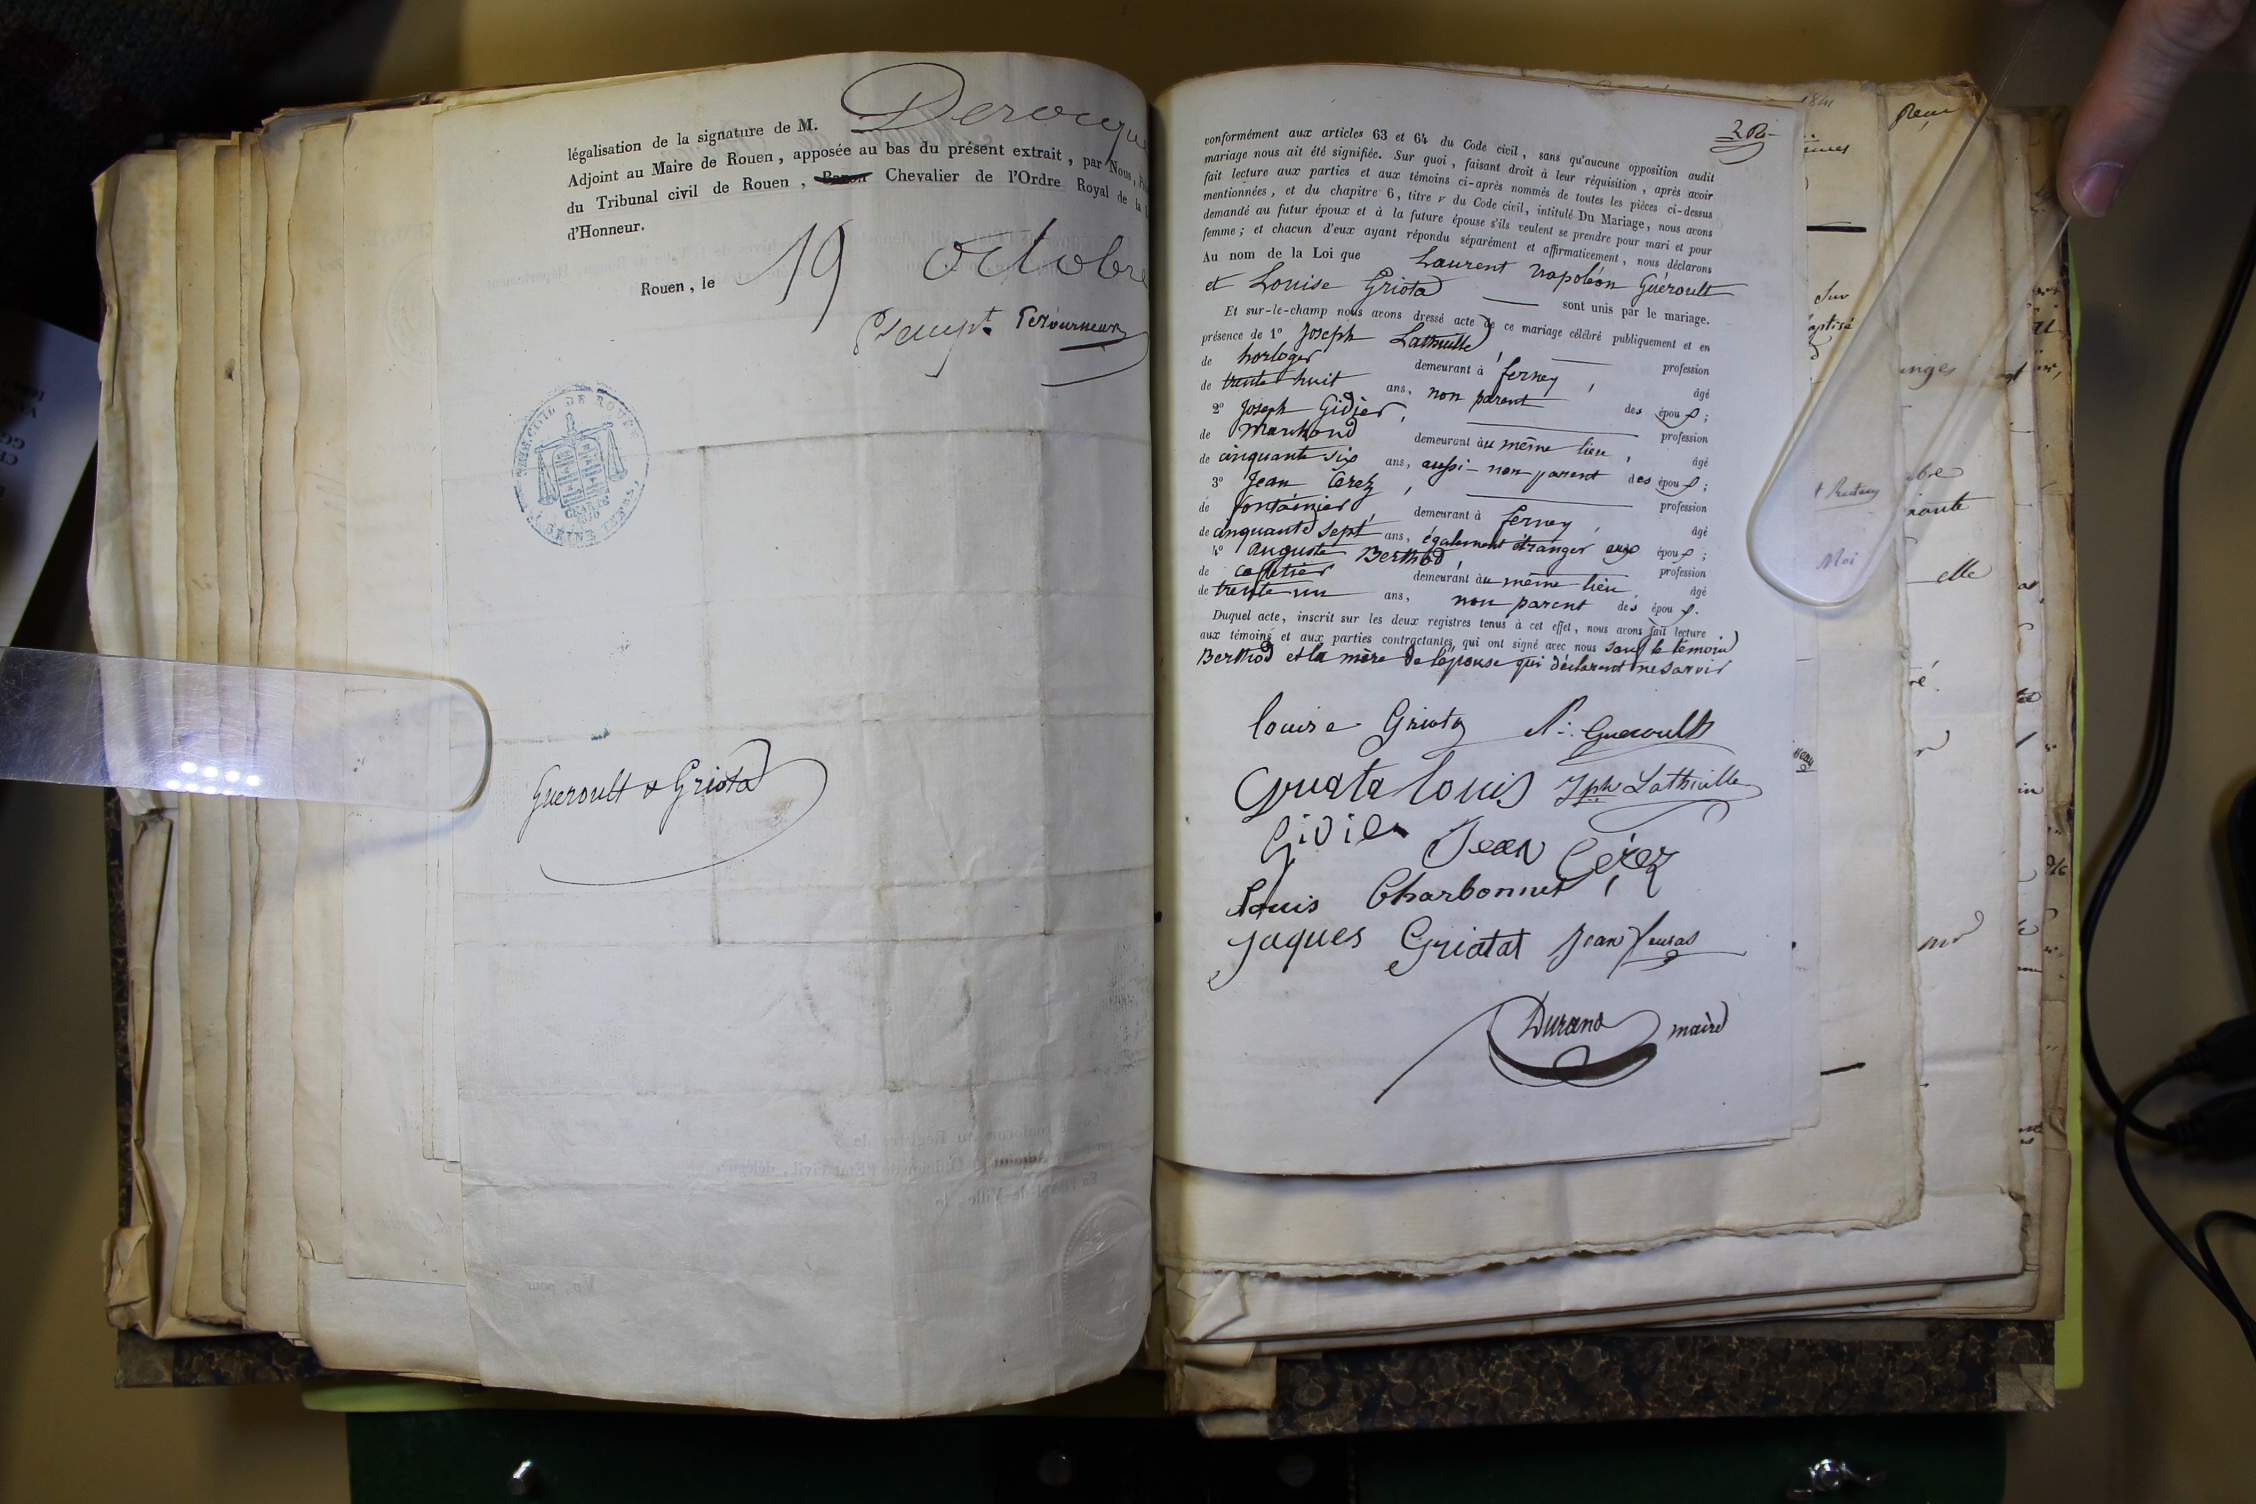 légalisation de la signature de M. Derocque
Adjoint au Maire de Rouen, apposée au bas du présent extrait, par Nous,
du Tribunal civil de Rouen, Baron Chevalier de l'Ordre Royal de la
d'Honneur.
Rouen, le 19 octobre
Letourneur
TRIB. CIVIL DE ROUEN
CHARTE
1830
SEINE INFRE.
Gueroult & Griota
conformément aux articles 63 et 64 du Code civil, sans qu'aucune opposition audit
mariage nous ait été signifiée. Sur quoi, faisant droit à leur réquisition, après avoir
fait lecture aux parties et aux témoins ci-après nommés de toutes les pièces ci-dessus
mentionnées, et du chapitre 6, titre v du Code civil, intitulé Du Mariage, nous avons
demandé au futur époux et à la future épouse s'ils veulent se prendre pour mari et pour
femme; et chacun d'eux ayant répondu séparément et affirmativement, nous déclarons
Au nom de la Loi que Laurent Napoléon Guéroult
et Louise Griota sont unis par le mariage.
Et sur-le-champ nous avons dressé acte de ce mariage célébré publiquement et en
présence de 1° Joseph Lathuille, profession
de horloger demeurant à ferney, âgé
de trente huit ans, non parent des époux;
2° Joseph Gidier, profession
de Marchand demeurant au même lieu, âgé
de cinquante six ans, aussi non parent des époux;
3° Jean Cerez, profession
de fontainier, demeurant à ferney, âgé
de cinquante sept ans, également étranger aux époux;
4° auguste Berthod, profession
de cafetier demeurant au même lieu, âgé
de trente un ans, non parent des époux.
Duquel acte, inscrit sur les deux registres tenus à cet effet, nous avons fait lecture
aux témoins et aux parties contractantes qui ont signé avec nous sauf le témoin
Berthod et la mère de l'épouse qui déclarent ne savoir
louise Griota N. Gueroult
Griata louis Jph Lathuille
Gidier Jean Cérez
Louis Charbonnet
jaques Griatat Jean
Durand maire